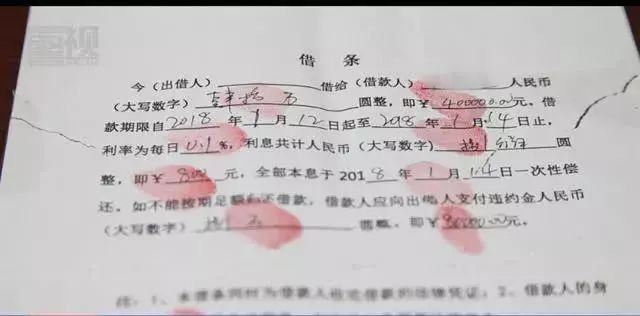 借 条
今（出借人）借给（借款人）人民币
（大写数字）圆整，即￥400000.00元。借
款期限自2018年1月12日起至2018年1月14日止，
利率为每日0.1%，利息共计人民币（大写数字）圆
整，即￥800元，全部本息于2018年1月14日一次性偿
还。如不能按期足额归还借款，借款人应向出借人支付违约金人民币
（大写数字）圆整，即￥80000.00元。
注：1、本借条同时为借款人收讫借款的法律凭证；2、借款人的身